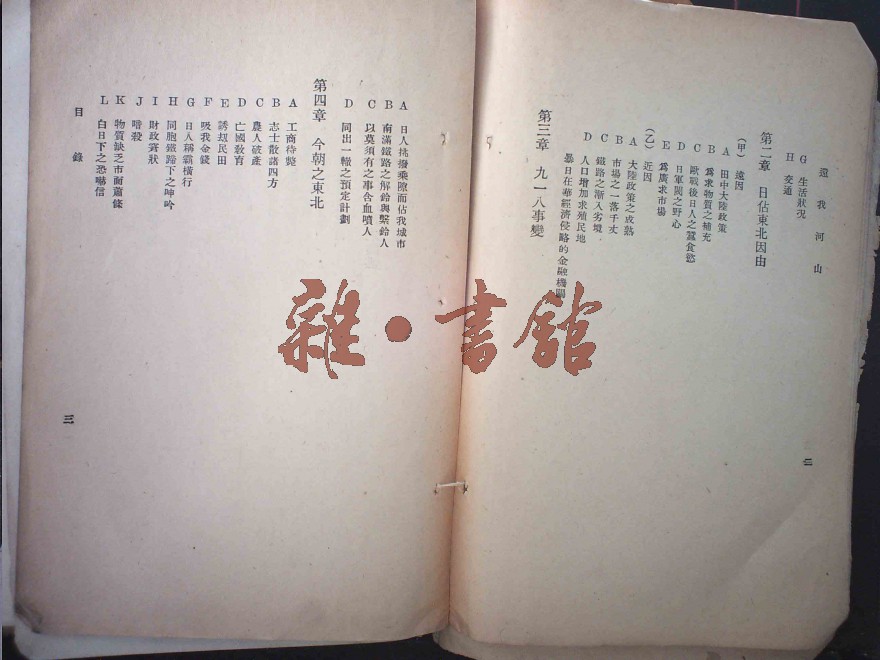 還我河山
G 生活狀況
H 交通
第二章 日佔東北因由
(甲)遠因
A 田中大陸政策
B 爲求物質之補充
C 歐戰後日人之蠶食慾
D 日軍閥之野心
E 爲廣求市場
(乙)近因
A 大陸政策之成熟
B 市場之一落千丈
C 鐵路之漸入劣境
D 人口增加求殖民地
暴日在華經濟侵略的金融機關
第三章 九一八事變
二
A 日人挑撥乘隙而佔我城市
B 南滿鐵路之解鈴與繫鈴人
C 以莫須有之事含血噴人
D 同出一轍之預定計劃
第四章 今朝之東北
A 工商待斃
B 志士散諸四方
C 農人破產
D 亡國敎育
E 誘刼民田
F 吸我金錢
G 日人稱霸橫行
H 同胞鐵蹄下之呻吟
I 財政實狀
J 暗殺
K 物質缺乏市面蕭條
L 白日下之恐嚇信
目錄
三
雜·書館